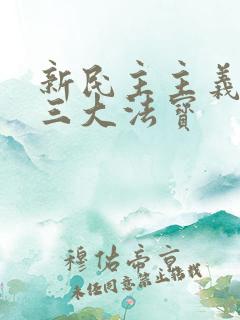 新民主主义
三大法宝
穆佑帝京
未经同意禁止搭载